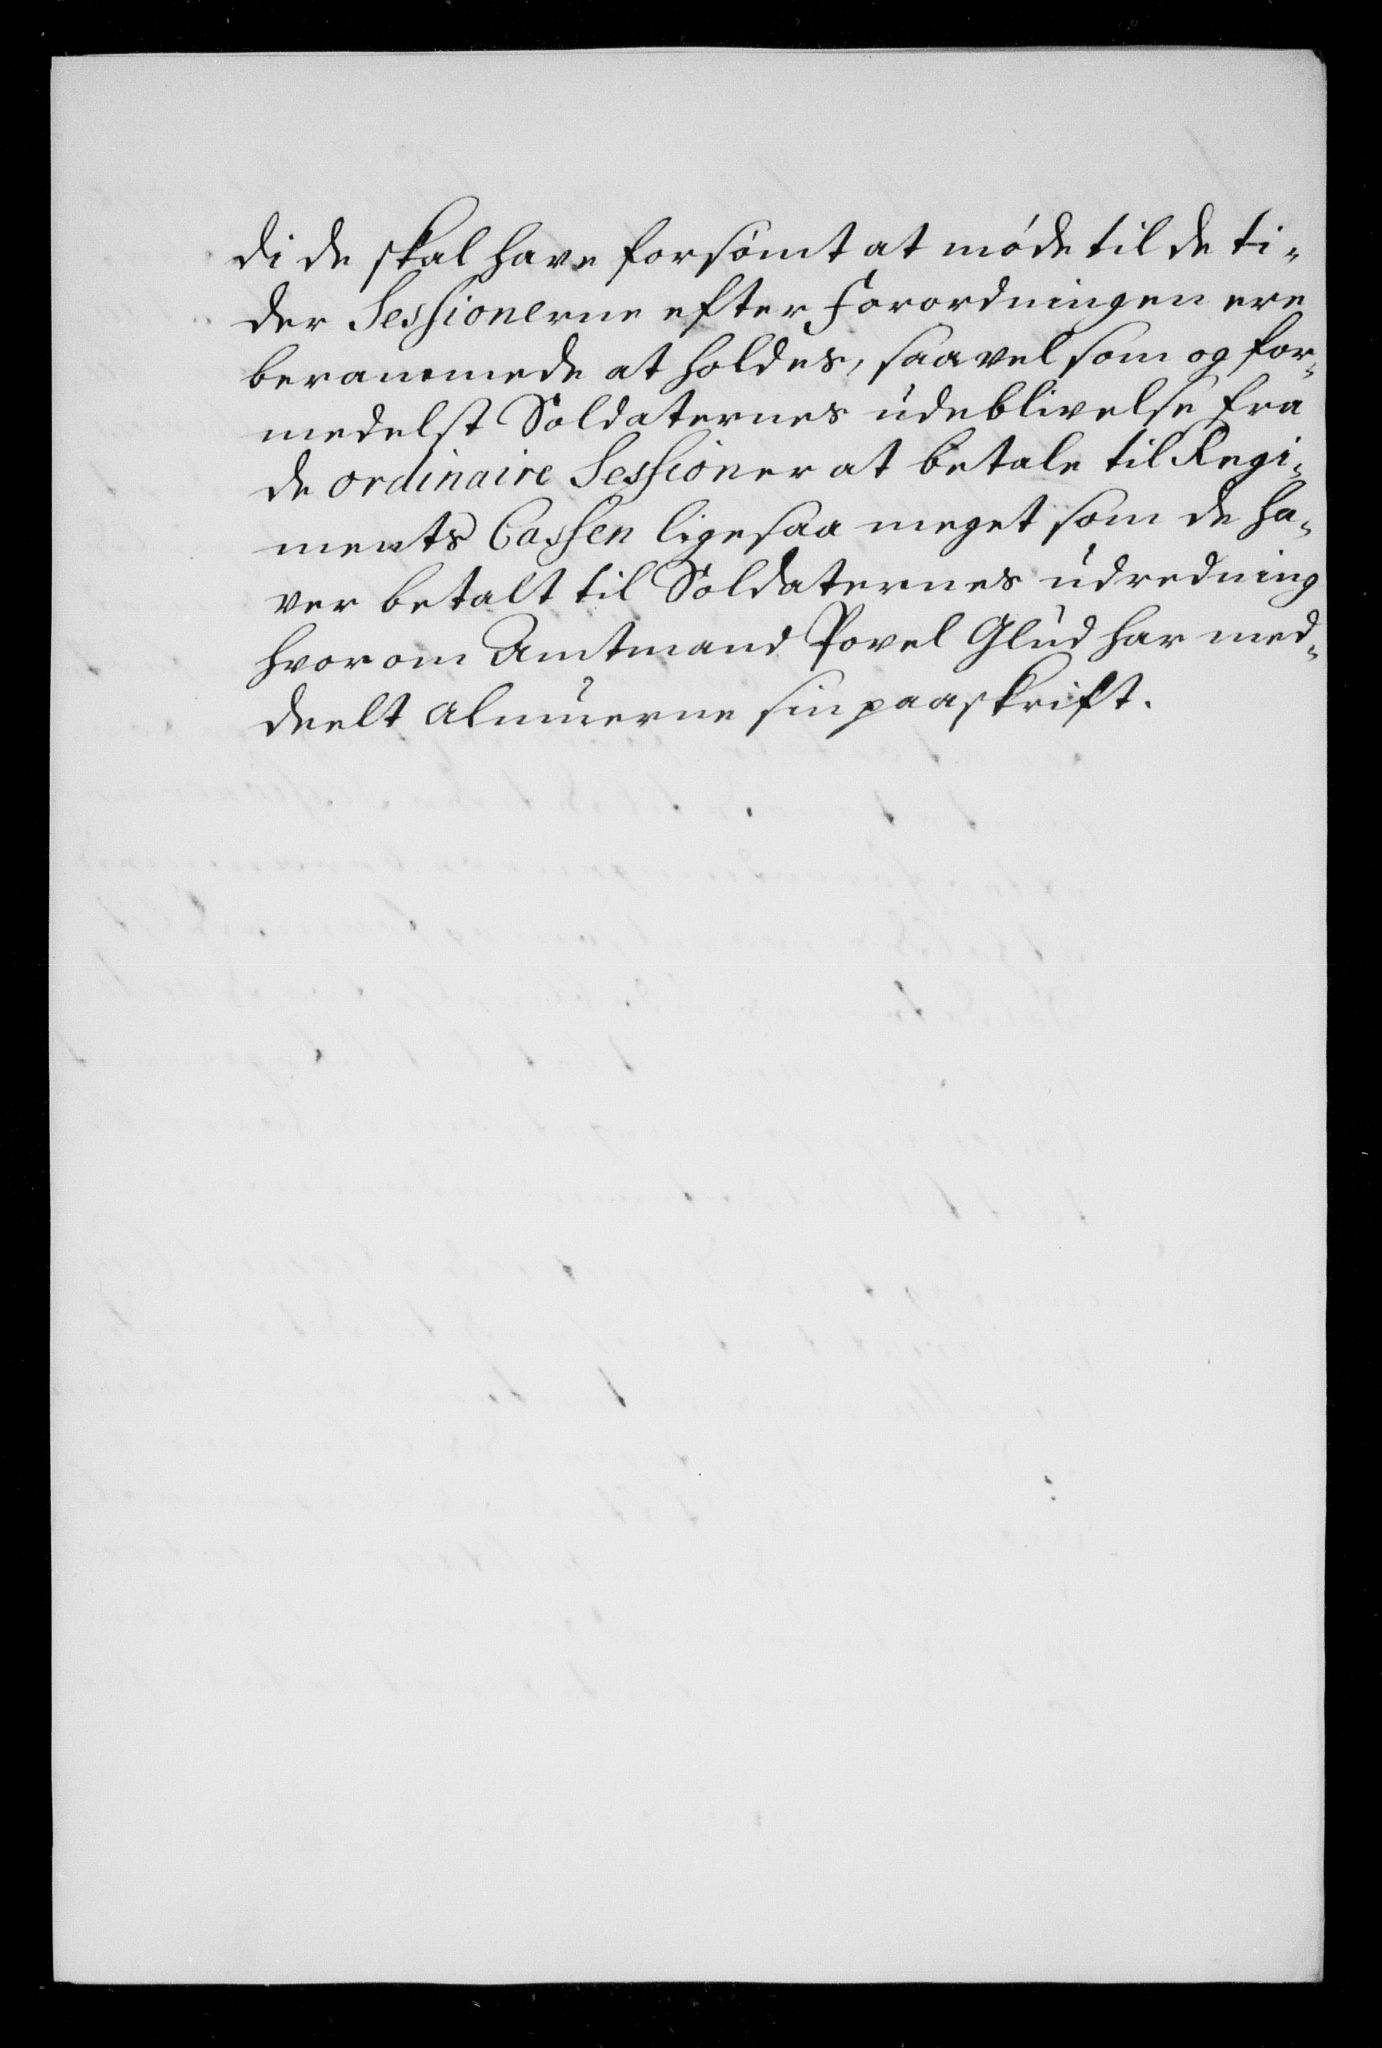 di de skal have forsømt at møde til de ti-
der Sessionerne efter Forordningen ere
berammede at holdes, saavel som og for-
medelst Soldaternes udeblivelse fra
de ordinaire Sessioner at betale til Regi-
ments Cassen ligesaa meget som de ha-
ver betalt til Soldaternes udredning
hvorom Amtmand Povel Glud har med-
deelt Almuerne sin paaskrift.